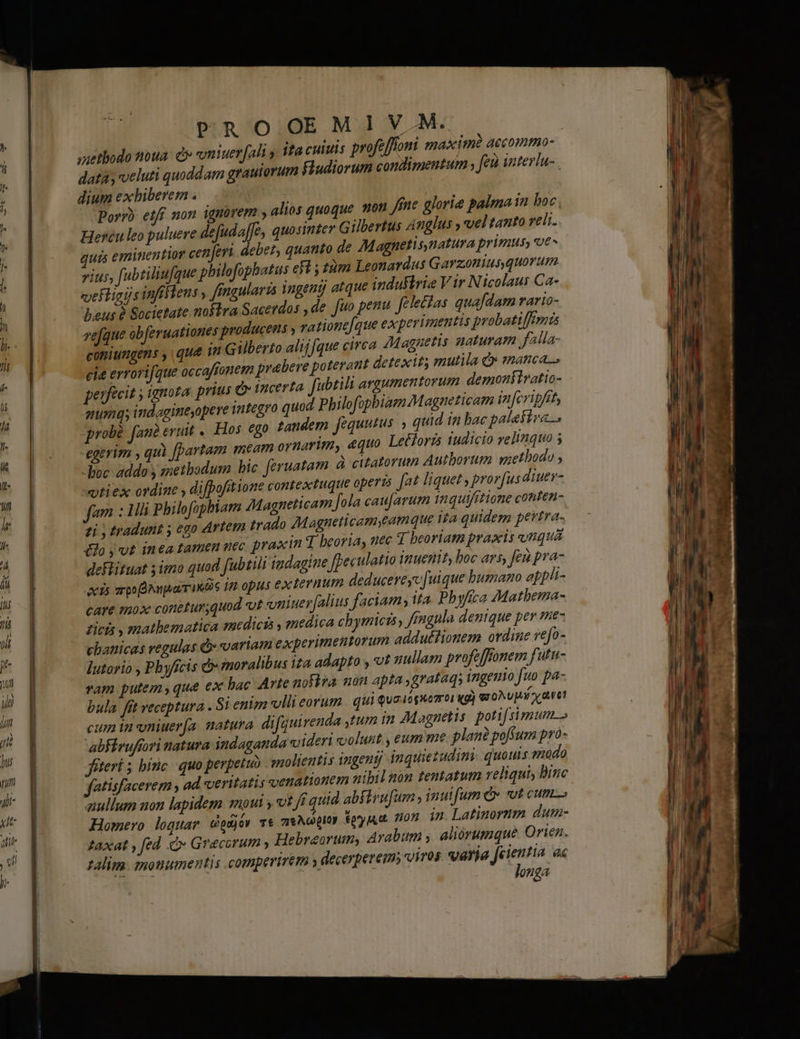 PROOEMIVM.
methodo noua & vniuersali, ita cuiuis professioni maximè accommo-
data, veluti quoddam grauiorum studiorum condimentum, seù interlu-
dium exhiberem.
Porrò etsi non ignorem, alios quoque non sine gloriæ palma in hoc
Herculeo puluere desudasse, quos inter Gilbertus Anglus, vel tanto reli-
quis eminentior censeri debet, quanto de Magnetis natura primus, ve-
rius, subtiliusque philosophatus est; tùm Leonardus Garzonius, quorum
vestigijs insistens, singularis ingenij atque industriæ Vir Nicolaus Ca-
beus è Societate nostra Sacerdos, de suo penu selectas quasdam rario-
resque obseruationes producens, rationesque experimentis probatissimis
coniungens, quæ in Gilberto alijsque circa Magnetis naturam falla-
ciæ errorisque occasionem præbere poterant detexit; mutila & manca
perfecit; ignota prius & incerta subtili argumentorum demonstratio-
numq; indagine, opere integro quod Philosophiam Magneticam inscripsit,
probè sanè eruit. Hos ego tandem sequutus, quid in hac palæstra
egerim, quà spartam meam ornarim, æquo Lectoris iudicio relinquo;
hoc addo, methodum hic seruatam à citatorum Authorum methodo,
vti ex ordine, dispositione contextuque operis sat liquet, prorsus diuer-
sam: Illi Philosophiam Magneticam sola causarum inquisitione conten-
ti, tradunt; ego Artem trado Magneticam, eamque ita quidem pertra-
cto, vt in ea tamen nec praxin Theoria, nec Theoriam praxis vnquã
destituat; imo quod subtili indagine speculatio inuenit, hoc ars, seù pra-
xis προβληματικῶς in opus externum deducere, vsuique humano appli-
care mox conetur; quod vt vniuersalius faciam, ita Physica Mathema-
ticis, mathematica medicis, medica chymicis, singula denique per me-
chanicas regulas & variam experimentorum adductionem ordine reso-
lutorio, Physicis & moralibus ita adapto, vt nullam professionem futu-
ram putem, quæ ex hac Arte nostra non apta, grataq; ingenio suo pa-
bula sit receptura. Si enim vlli eorum qui φυσιοσκοποι καὶ πολυμήχανοι
cum in vniuersa natura disquirenda, tum in Magnetis potissimum
abstrusiori natura indaganda videri volunt, eum me planè possum pro-
fiteri; hinc quo perpetuò molientis ingenij inquietudini quouis modo
satisfacerem, ad veritatis venationem nihil non tentatum reliqui, hinc
nullum non lapidem moui, vt si quid abstrusum, inuisum & vt cum
Homero loquar τε πελώριον ἔργμα non in Latinorum dum-
taxat, sed & Græcorum, Hebræorum, Arabum, aliorumque Orien-
talium monumentis comperirem, decerperem; viros varia scientia ac
longa